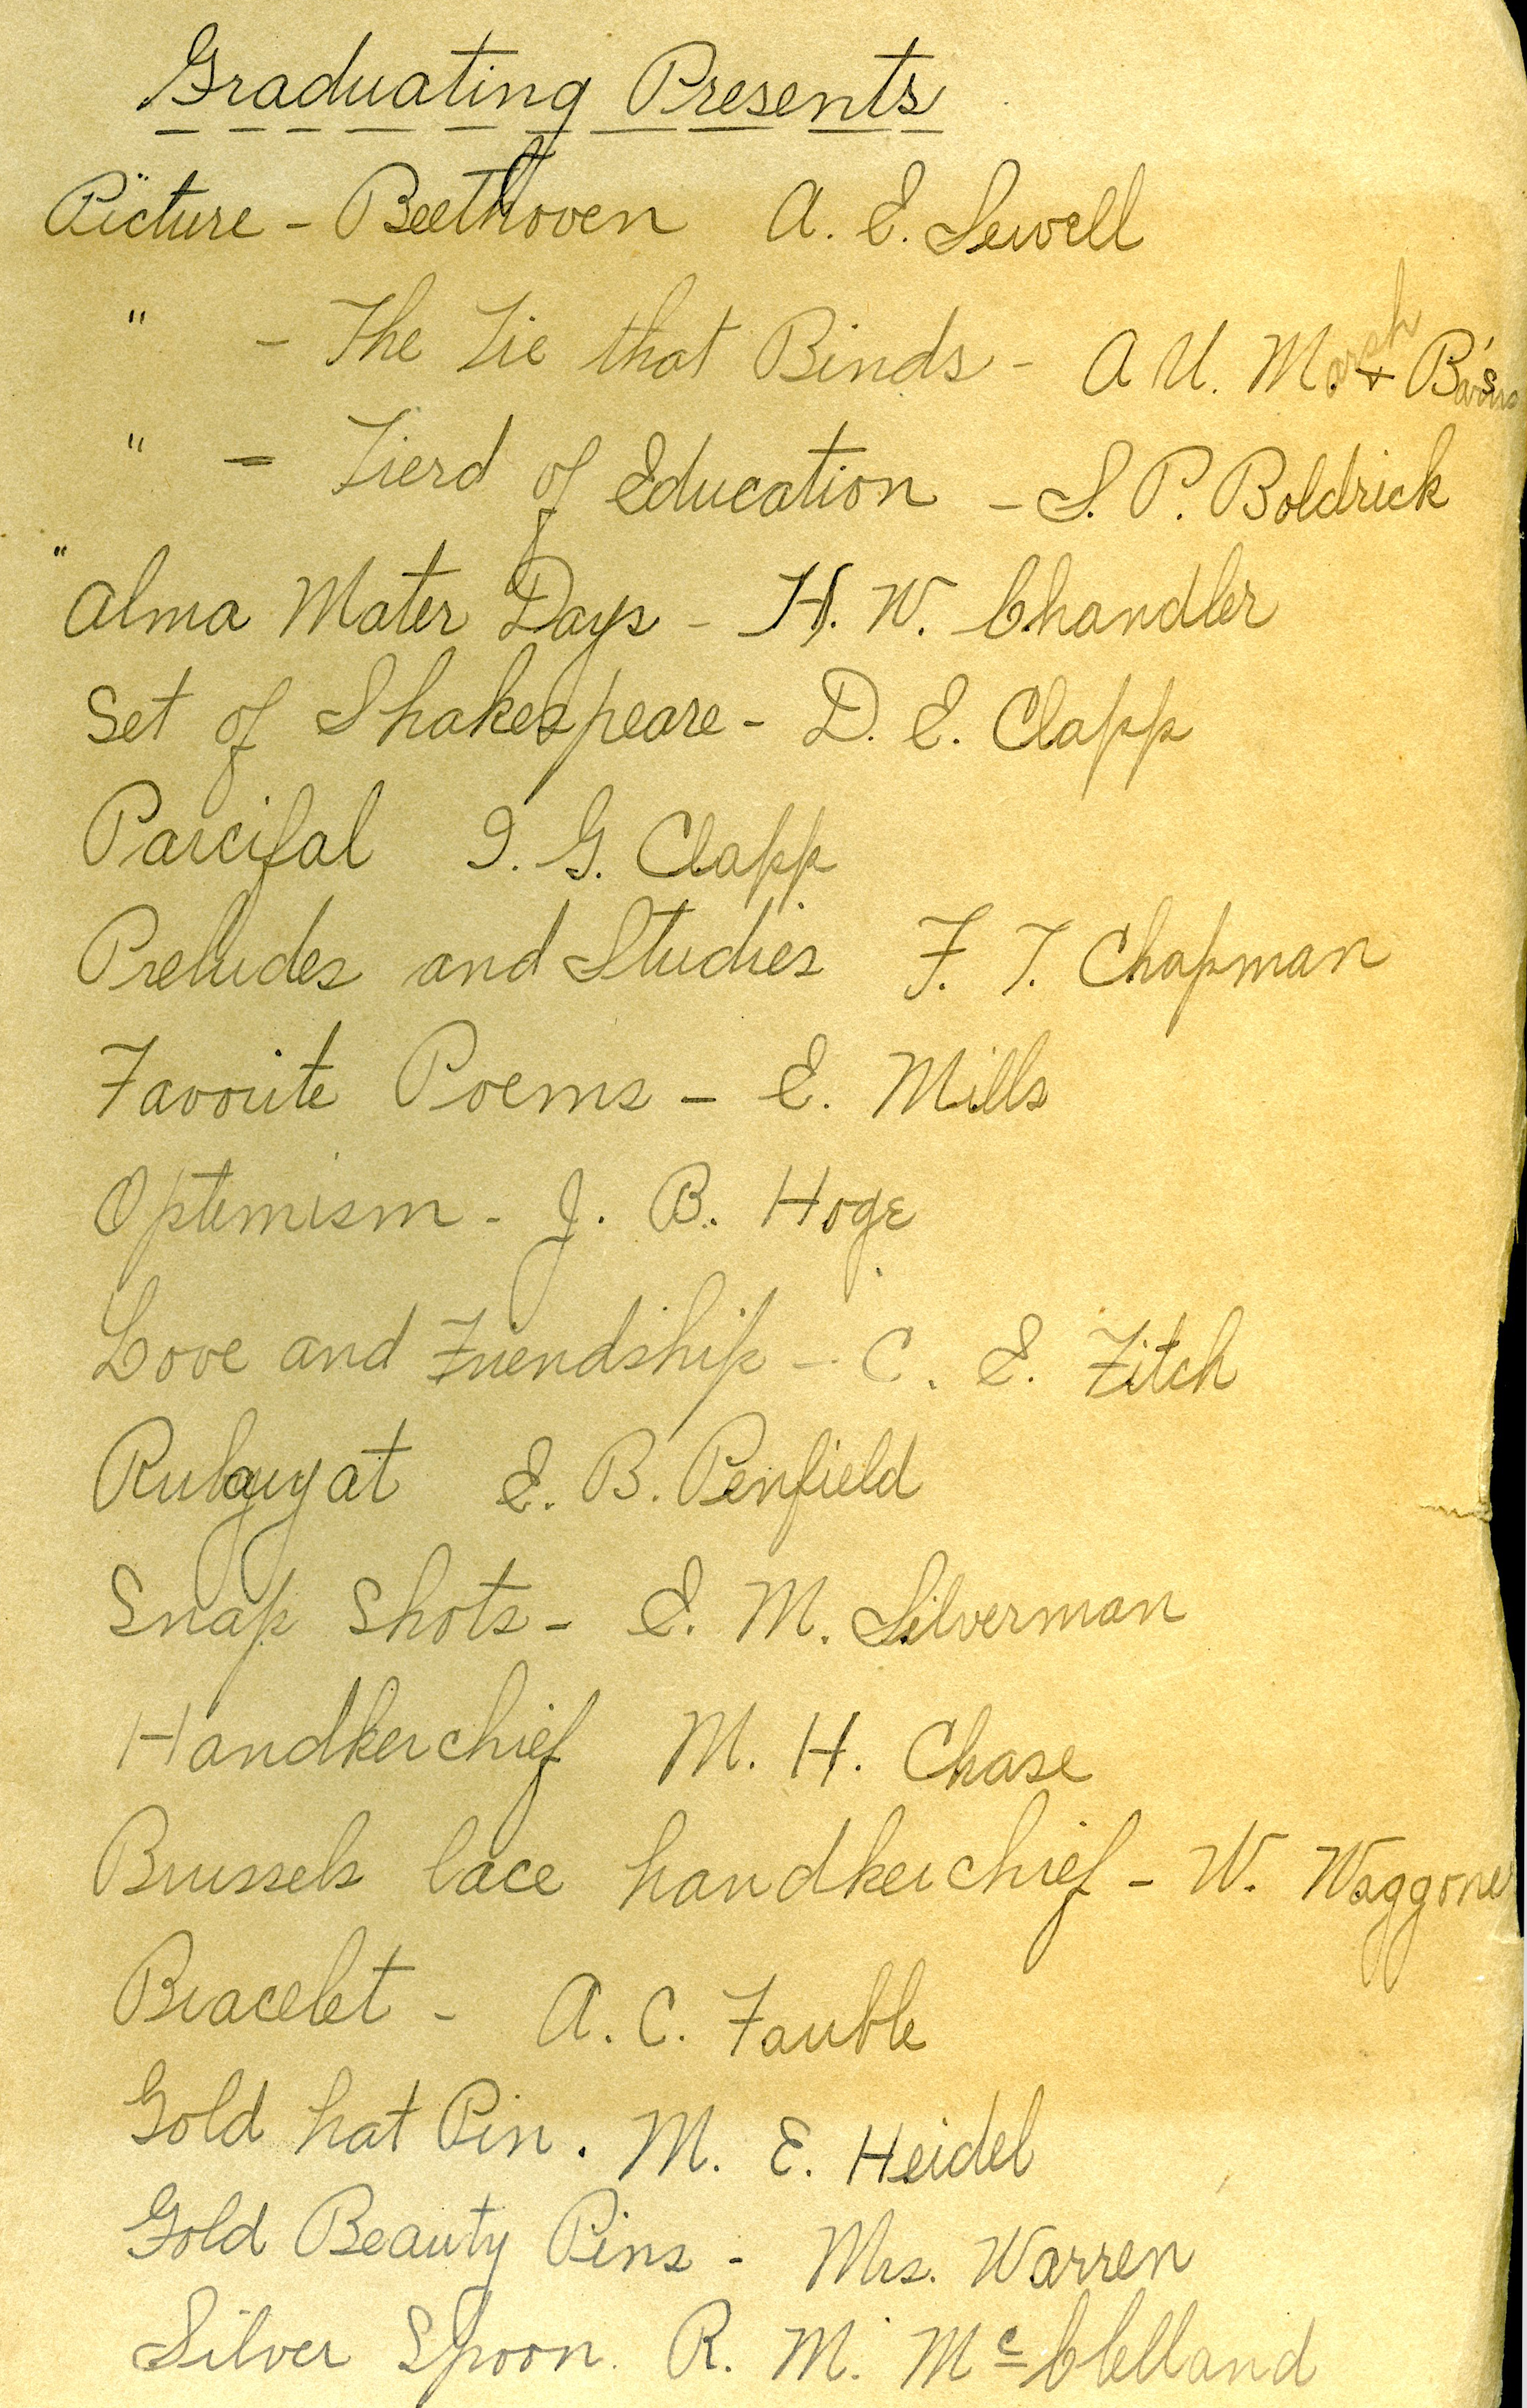 Graduating Presents
Picture - Beethoven A. E. Sewell
" - The Tie that Binds - A U. Marsh + B's
" - Tierd of Education - S. P. Boldrick
" Alma Mater Days - H. W. Chandler
Set of Shakespeare - D. E. Clapp
Parcifal I. G. Clapp
Preludes and Studies F. T. Chapman
Favorite Poems - E. Mills
Optimism - J. B. Hoge
Love and Friendship - C. E. Fitch
Rubayyat E. B. Penfield
Snap Shots - E. M. Silverman
Handkerchief M. H. Chase
Brussels lace handkerchief - W. Waggoner
Bracelet - A. C. Fauble
Gold hat Pin. M. E. Heidel
Gold Beauty Pins - Mrs. Warren
Silver Spoon. R. M. McClelland